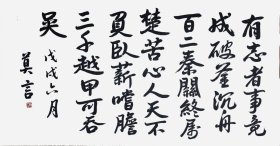 有志者事竟
成破釜沉舟
百二秦關終屬
楚苦心人天不
負臥薪嚐膽
三千越甲可吞
吳
戊戌六月
莫言